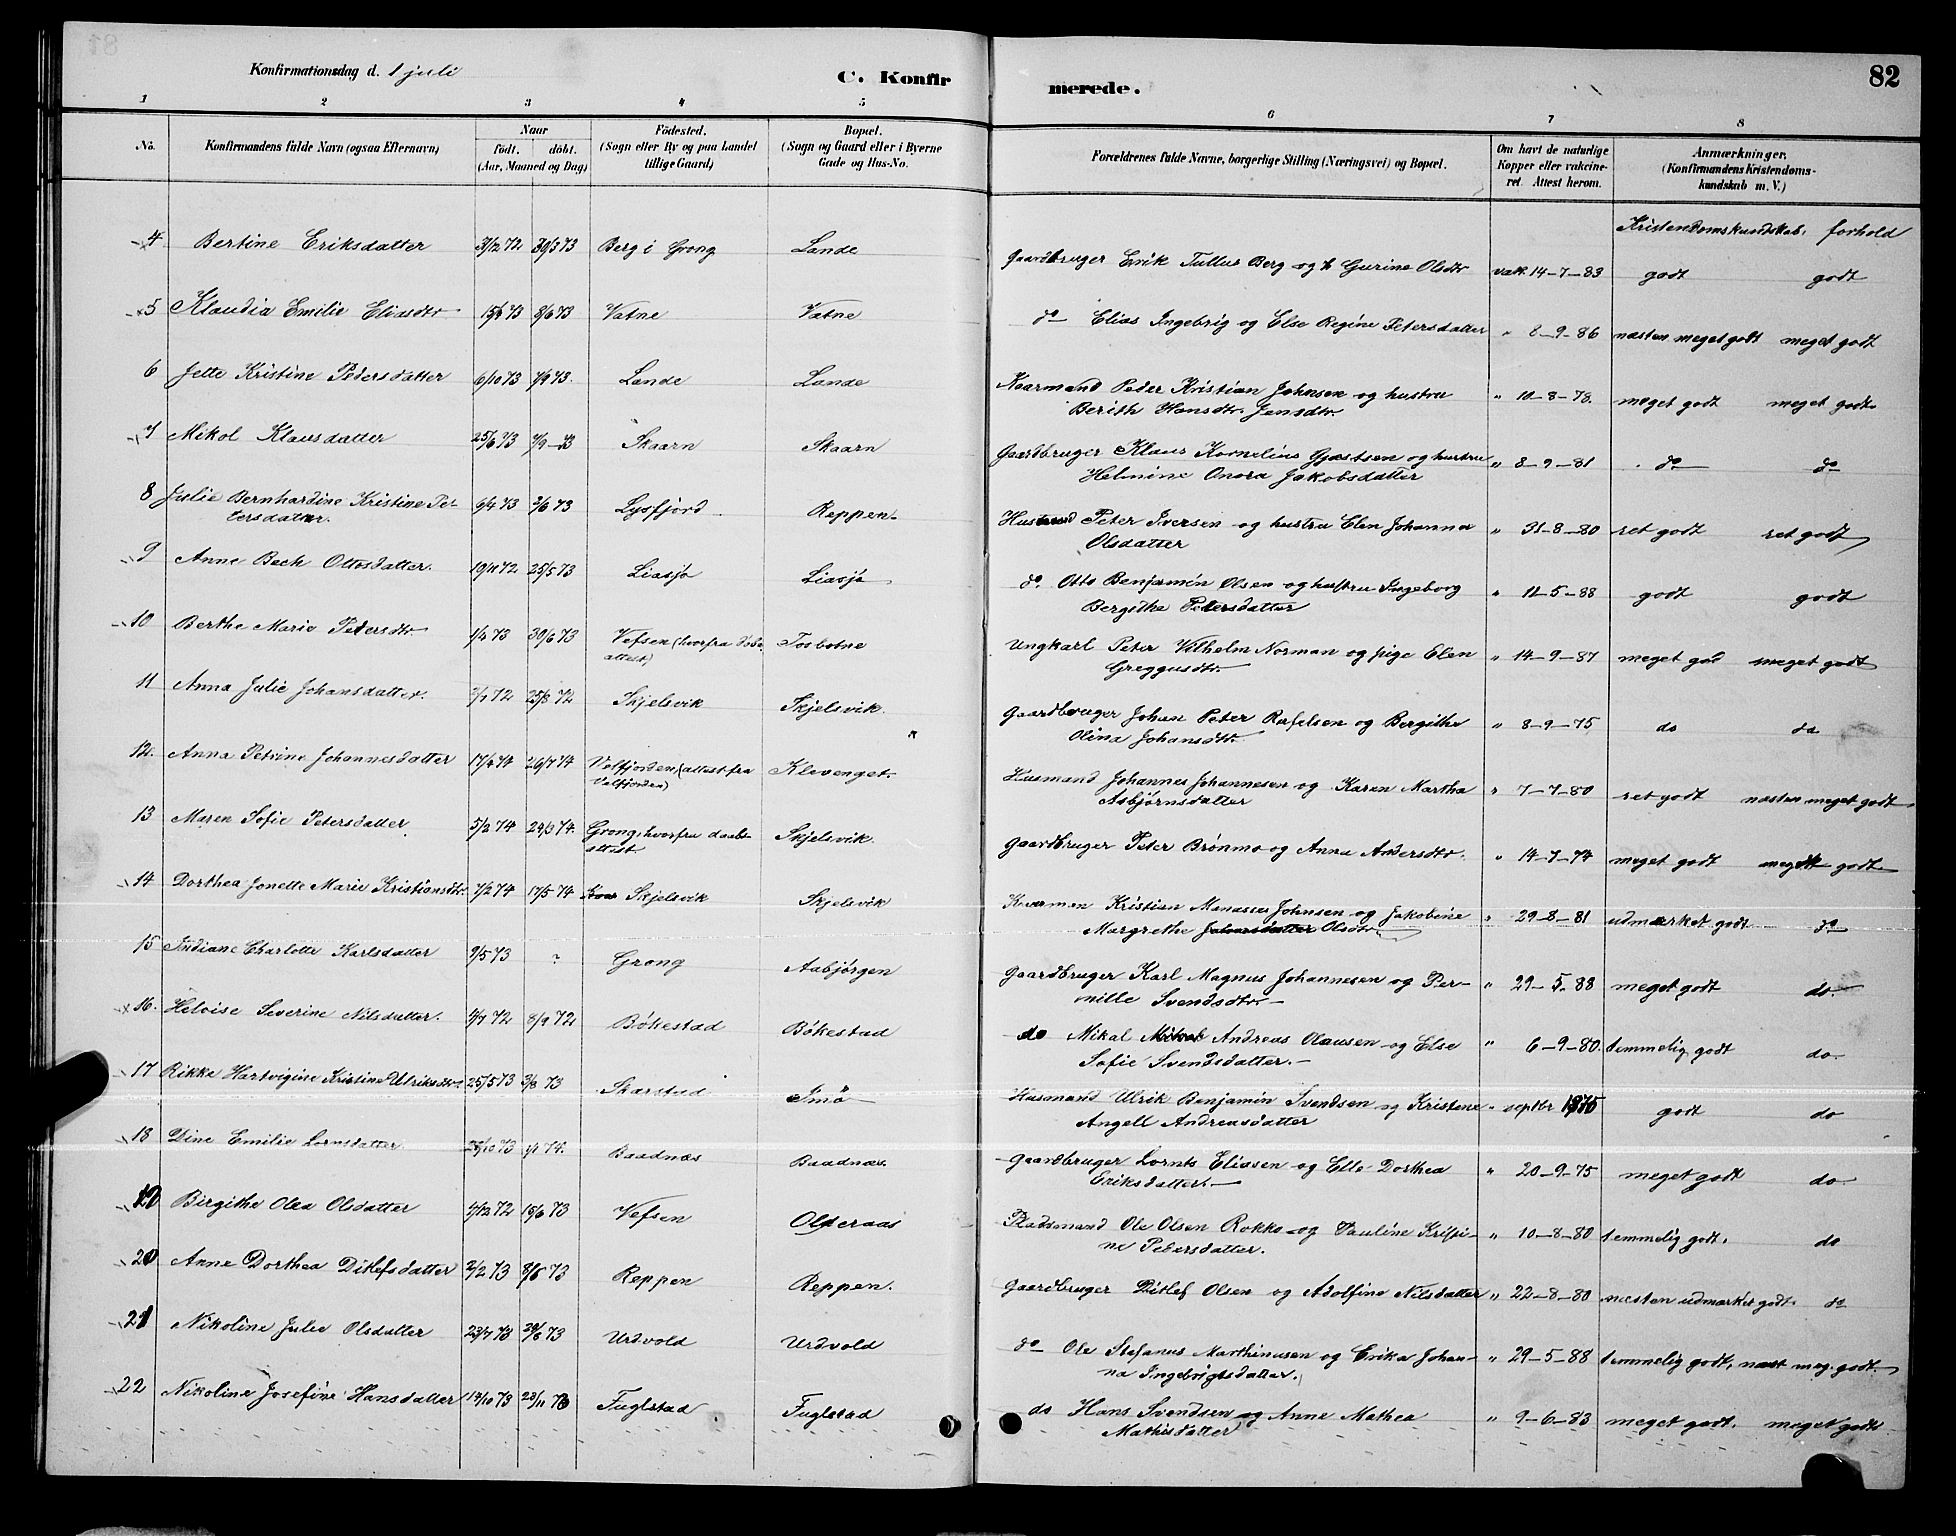 Konfirmationsdag d. 1 juli
C. Konfir
merede.
82
1 2 3 4 5 6 7 8
No.
Konfirmandens fulde Navn (ogsaa Efternavn)
Naar
født. døbt.
(Aar, Maaned og Dag)
Fødested.
(Sogn eller By og paa Landet
tillige Gaard)
Bopæl.
(Sogn og Gaard eller i Byerne
Gade og Hus-No.
Forældrenes fulde Navne, borgerlige Stilling (Næringsvei) og Bopæl.
Om havt de naturlige
Kopper eller vakcine-
ret. Attest herom.
Anmærkninger.
(Konfirmandens Kristendoms-
kundskab m. V.)
Kristendomskundskab. forhold
4 Bertine Eriksdatter 31/12 72 30/3 73 Berg i Grong Lande Gaardbruger Erik Tullus Berg og h Gurine Olsdtr vak. 14-7-83 godt godt
5 Klaudia Emilie Eliasdtr 15/4 73 8/6 73 Vatne Vatne do Elias Ingebrig og Else Regine Petersdatter " 8-9-86 næsten meget godt meget godt
6 Jette Kristine Pedersdatter 6/10 73 7/9 73. Lande Lande Kaarmand Peder Kristian Johnsen og hustru
Berith Hansdtr. Jensdtr. " 11-8-78. meget godt meget godt
7 Mikol Klausdatter 25/6 73 7/9-73 Skaarn Skaarn Gaardbruger Klaus Kornelius Gjæstsen og hustru
Helmine Onora Jakobsdatter " 8-9-81 do do
8 Julie Bernhardine Kristine Pe-
tersdatter. 6/4 73 2/6 73 Lysfjord Reppen. Husmand Peter Iversen og hustru Elen Johanna
Olsdatter " 31-8-80 ret godt ret godt
9 Anne Bech Ottosdatter. 19/11 72 25/5 73 Liasjø Liasjø do. Otto Benjamin Olsen og hustru Ingeborg
Bergithe Petersdatter " 11-5-88 godt godt
10 Berthe Marie Petersdtr 1/4 73 30/6 73 Vefsen (hvorfra døbe
attest) Tosbotne Ungkarl Peter Vilhelm Norman og pige Elen
Greggusdtr. " 14-9-87 meget god meget godt
11 Anna Julie Johansdatter. 2/7 72 25/8 72 Skjelsvik Skjelsvik. Gaardbruger Johan Peter Rafelsen og Bergithe
Olina Johansdtr. " 8-9-75 do do
12. Anna Petrine Johannesdatter 17/4 74 26/7 74 Velfjorden, (attest fra
Velfjorden) Klevenget. Husmand Johannes Johannesen og Karen Martha
Asbjørnsdatter " 7-7-80 ret godt næsten meget godt
13 Maren Sofie Petersdatter 5/2 74 29/3 74. Grong, hvorfra daabs-
attest. Skjelsvik. Gaardbruger Peter Brønmo og Anna Andersdtr. " 14-7-74 meget godt meget godt
14 Dorthea Jonette Marie Kristiansdtr. 7/2 74 17/5 74 Skjelsvik Skjelsvik Kaarman Kristian Manasse Johnsen og Jakobine
Margrethe Johansdatter Olsdtr " 29-8-81 udmærket godt do
15 Indiane Charlotte Karlsdatter 9/5 73 ? Grong Aabjørgen Gaardbruger Karl Magnus Johannesen og Per-
nille Svendsdtr. " 29-5-88 meget godt do.
16. Heloise Severine Nilsdatter. 4/7 72 8/9 72 Bøkestad Bøkestad do Nikal Andreas Olausen og Else
Sofie Svendsdatter. " 6-9-80. temmelig godt do
17 Rikke Hartvigine Kristine Ulriksdtr. 25/5 73 3/8 73 Skarstad Imø Husmand Ulrik Benjamin Svendsen og Kristene
Angell Andreasdatter " septbr 1875 godt do
18 Dine Emilie Lorntsdatter 26/10 73 1/1 74. Baadnæs Baadnæs. Gaardbruger Lornts Eliasen og Elle Dorthea
Eriksdatter. " 20-9-75 meget godt do
19 Birgithe Olea Olsdatter 4/12 72 15/6 73 Vefsen Olderaas Pladsmand Ole Olsen Rokko og Pauline Krispi-
ne Pedersdatter. " 10-8-80 temmelig godt. do
20 Anne Dorthea Ditlefsdatter 2/2 73 8/6 73 Reppen Reppen. Gaardbruger Ditlef Olsen og Adolfine Nilsdatter " 22-8-80 næsten udmærket godt. do
21 Nikoline Julie Olsdatter 23/7 73 29/8 73 Urdvold Urdvold do Ole Stefanus Marthinusen og Erika Johan-
na Ingebrigtsdatter. " 29-5-88 temmelig godt, næst meg. godt
22 Nikoline Josefine Hansdatter 14/10 73 23/11 73 Fuglstad Fuglstad do Hans Svendsen og Anne Mathea
Mathisdatter " 9-6-83 meget godt. meget godt